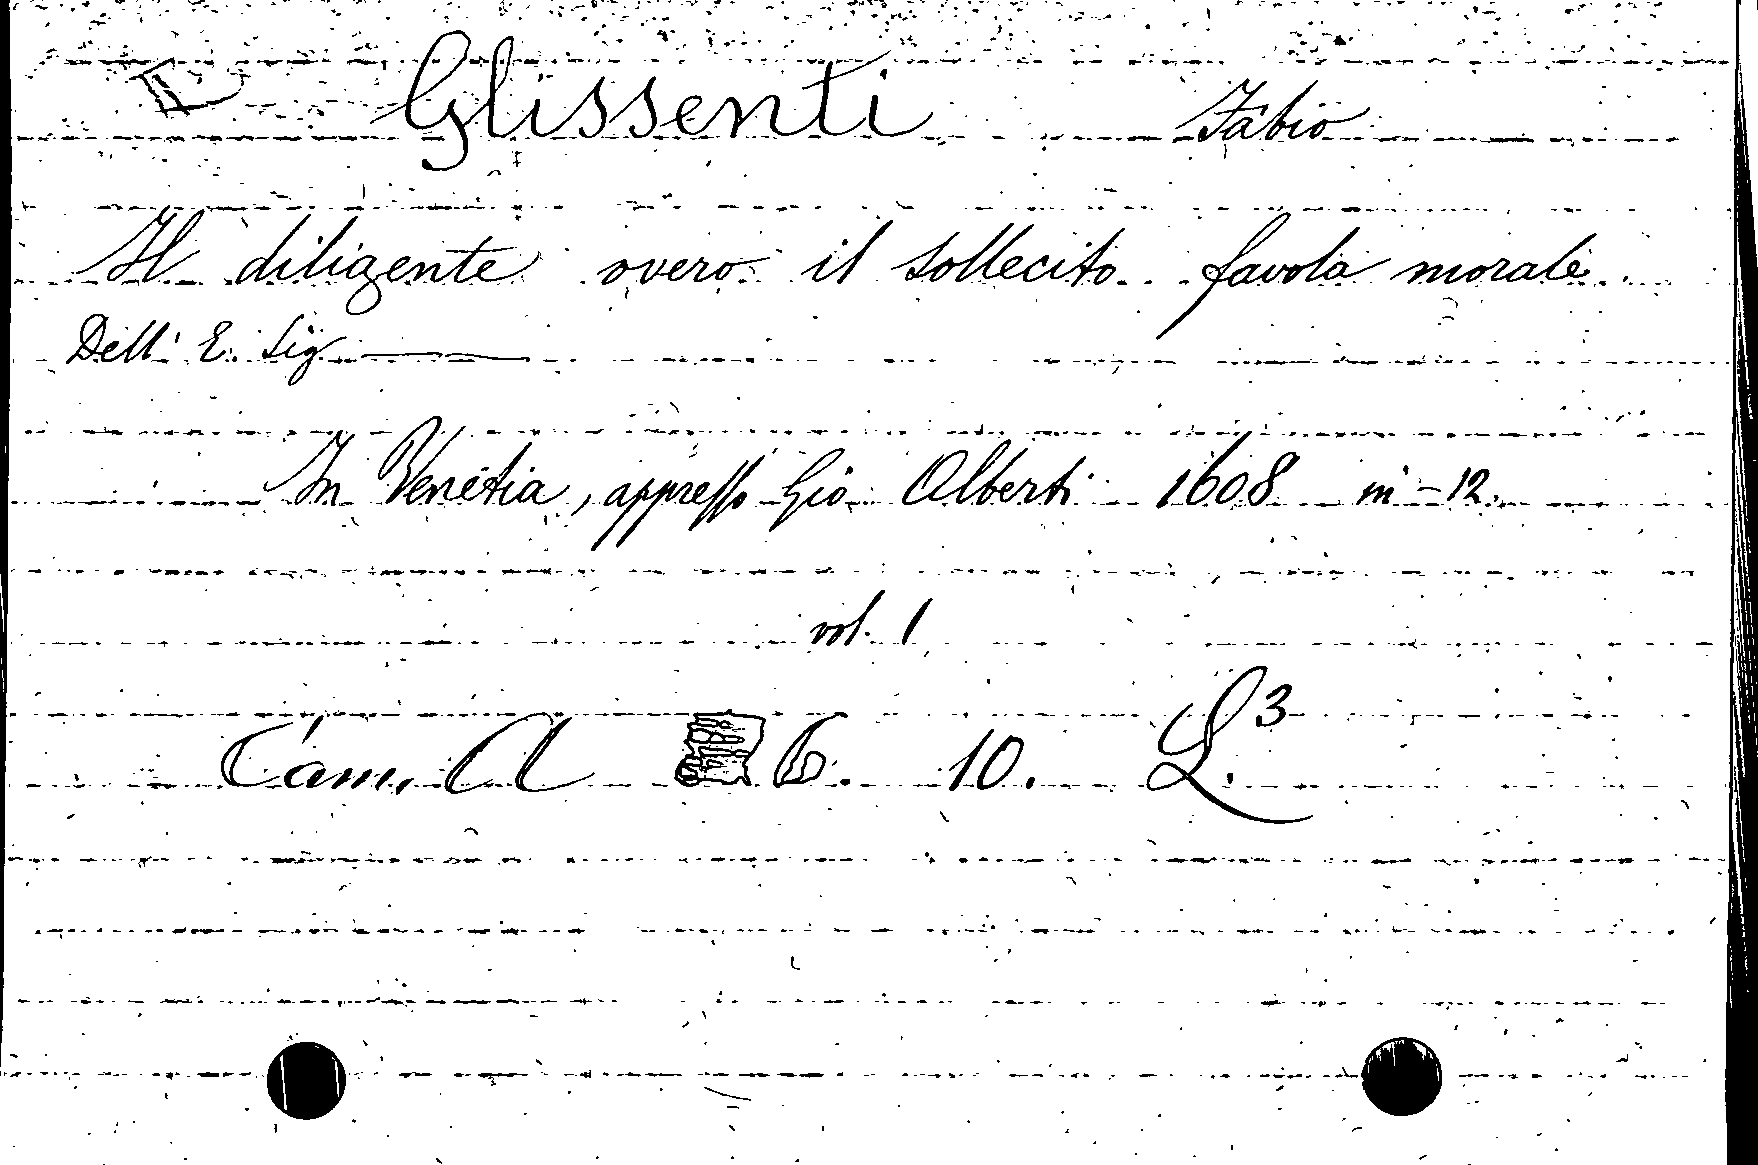 Glissenti Fabio
Il diligente overo il sollecito favola morale.
Dell' E. Sig
In Venetia, appresso Gio. Alberti 1608 in-12.
vol. 1
Cam. A 6. 10. L.3